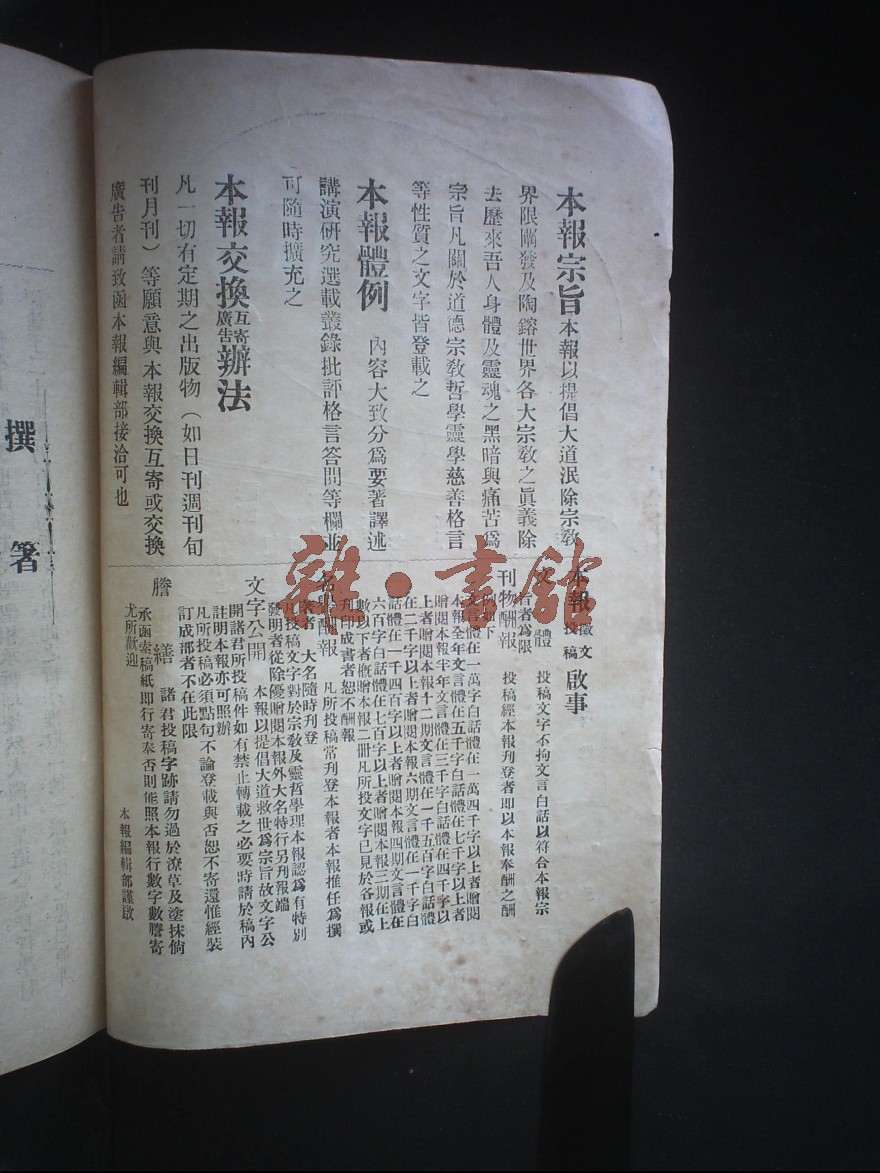 本報宗旨 本報以提倡大道泯除宗敎
界限闡發及陶鎔世界各大宗敎之眞義除
去歷來吾人身體及靈魂之黑暗與痛苦爲
宗旨凡關於道德宗敎哲學靈學慈善格言
等性質之文字皆登載之
本報體例 內容大致分爲要著譯述
講演研究選載叢錄批評格言答問等欄並
可隨時擴充之
本報交換互寄廣告辦法
凡一切有定期之出版物（如日刊週刊旬
刊月刊）等願意與本報交換互寄或交換
廣告者請致函本報編輯部接洽可也
本報徵文投稿啟事
文體 投稿文字不拘文言白話以符合本報宗
旨者爲限
刊物酬報 投稿經本報刊登者即以本報奉酬之酬
例如下
文言體在一萬字白話體在一萬四千字以上者贈閱
本報全年文言體在五千字白話體在七千字以上者
贈閱本報半年文言體在三千字白話體在四千字以
上者贈閱本報十二期文言體在一千五百字白話體
在二千字以上者贈閱本報六期文言體在一千字白
話體在一千四百字以上者贈閱本報四期文言體在
六百字白話體在七百字以上者贈閱本報三期在上
數以下者槪贈本報二冊凡所投文字已見於各報或
刊印成書者恕不酬報
名譽酬報 凡所投稿常刊登本報者本報推任爲撰
著者 大名隨時刊登
凡投稿文字對於宗敎及靈哲學理本報認爲有特別
發明者從除優贈閱本報外大名特行另刋報端
文字公開 本報以提倡大道救世爲宗旨故文字公
開諸君所投稿件如有禁止轉載之必要時請於稿內
註明本報亦可照辦
凡所投稿必須點句不論登載與否恕不寄還惟經裝
訂成部者不在此限
謄繕 諸君投稿字跡請勿過於潦草及塗抹倘
承函索稿紙即行寄奉否則能照本報行數字數謄寄
尤所歡迎
本報編輯部謹啟
撰著
雜·書館